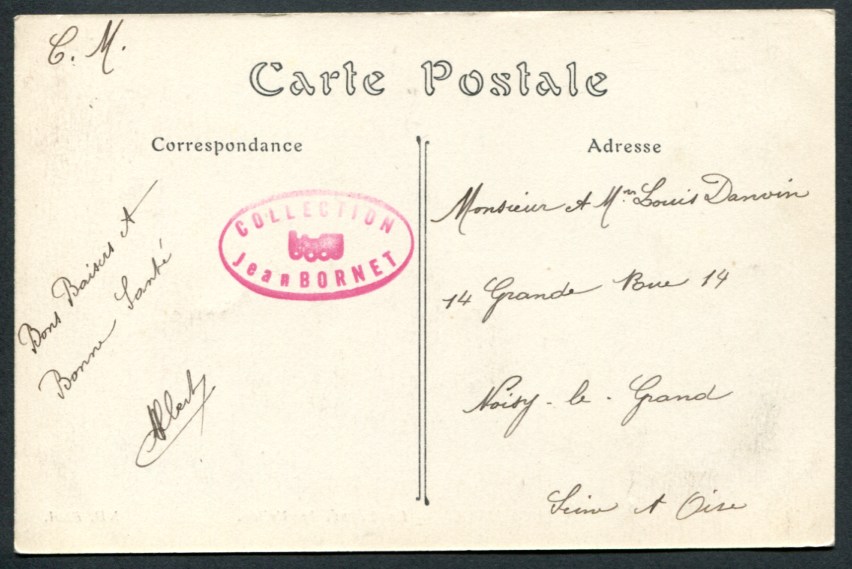 C. M.
Carte Postale
Correspondance
Bons Baisers et
Bonne Santé
Albert
COLLECTION
Jean BORNET
Adresse
Monsieur et Mme Louis Danvin
14 Grande Rue 14
Noisy-le-Grand
Seine et Oise